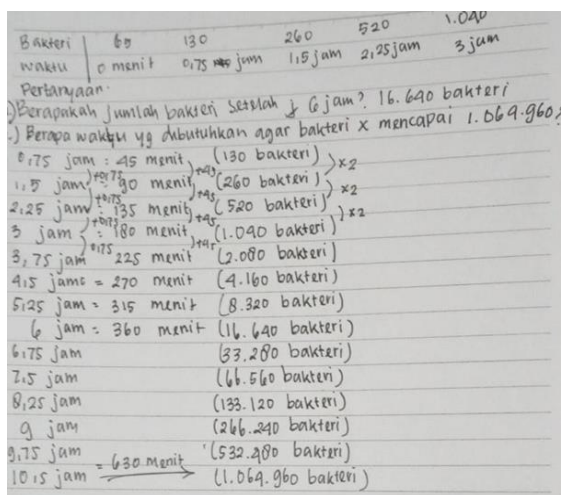 Bakteri 65 130 260 520 1.040
waktu 0 menit 0,75 jam 1,5 jam 2,25 jam 3 jam
Pertanyaan:
.) Berapakah jumlah bakteri setelah 6 jam? 16.640 bakteri
.) Berapa waktu yg dibutuhkan agar bakteri x mencapai 1.064.960?
0,75 jam : 45 menit (130 bakteri)
+0,75 +45 ×2
1,5 jam : 90 menit (260 bakteri)
+0,75 +45 ×2
2,25 jam : 135 menit (520 bakteri)
+0,75 +45 ×2
3 jam : 180 menit (1.040 bakteri)
0,75 +45
3,75 jam 225 menit (2.080 bakteri)
4,5 jam = 270 menit (4.160 bakteri)
5,25 jam = 315 menit (8.320 bakteri)
6 jam = 360 menit (16.640 bakteri)
6,75 jam (33.280 bakteri)
7,5 jam (66.560 bakteri)
8,25 jam (133.120 bakteri)
9 jam (266.240 bakteri)
9,75 jam (532.480 bakteri)
10,5 jam = 630 menit (1.064.960 bakteri)